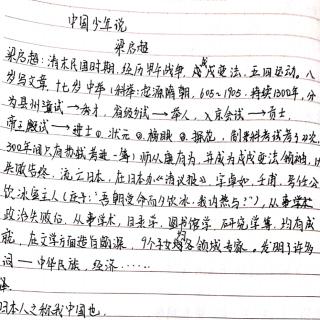 中国少年说
梁启超
梁启超：清末民国时期，经历甲午战争，戊戌变法，五四运动。八
岁写文章，十七岁中举（科举：起源隋朝，605~1905，持续1300年，分
为县州道试→秀才，省级乡试→举人，入京会试→贡士，
帝王殿试→进士①状元②榜眼③探花，制科考试考了20次，
300年间只有恭试考进一等）师从康有为，并成为戊戌变法领袖，
失败告终，流亡日本，在日本办《清议报》，字卓如，任甫，号任公
饮冰室主人（庄子："吾朝受命而夕饮冰，我内热与？"），从事
政治失败后，从事学术，目录学，图书馆学，研究学等，均有成
就，在文学方面造旨颇深，9个子女均各领域专家。发明了许多
词——中华民族，经济……
译
日本人之称我中国也，